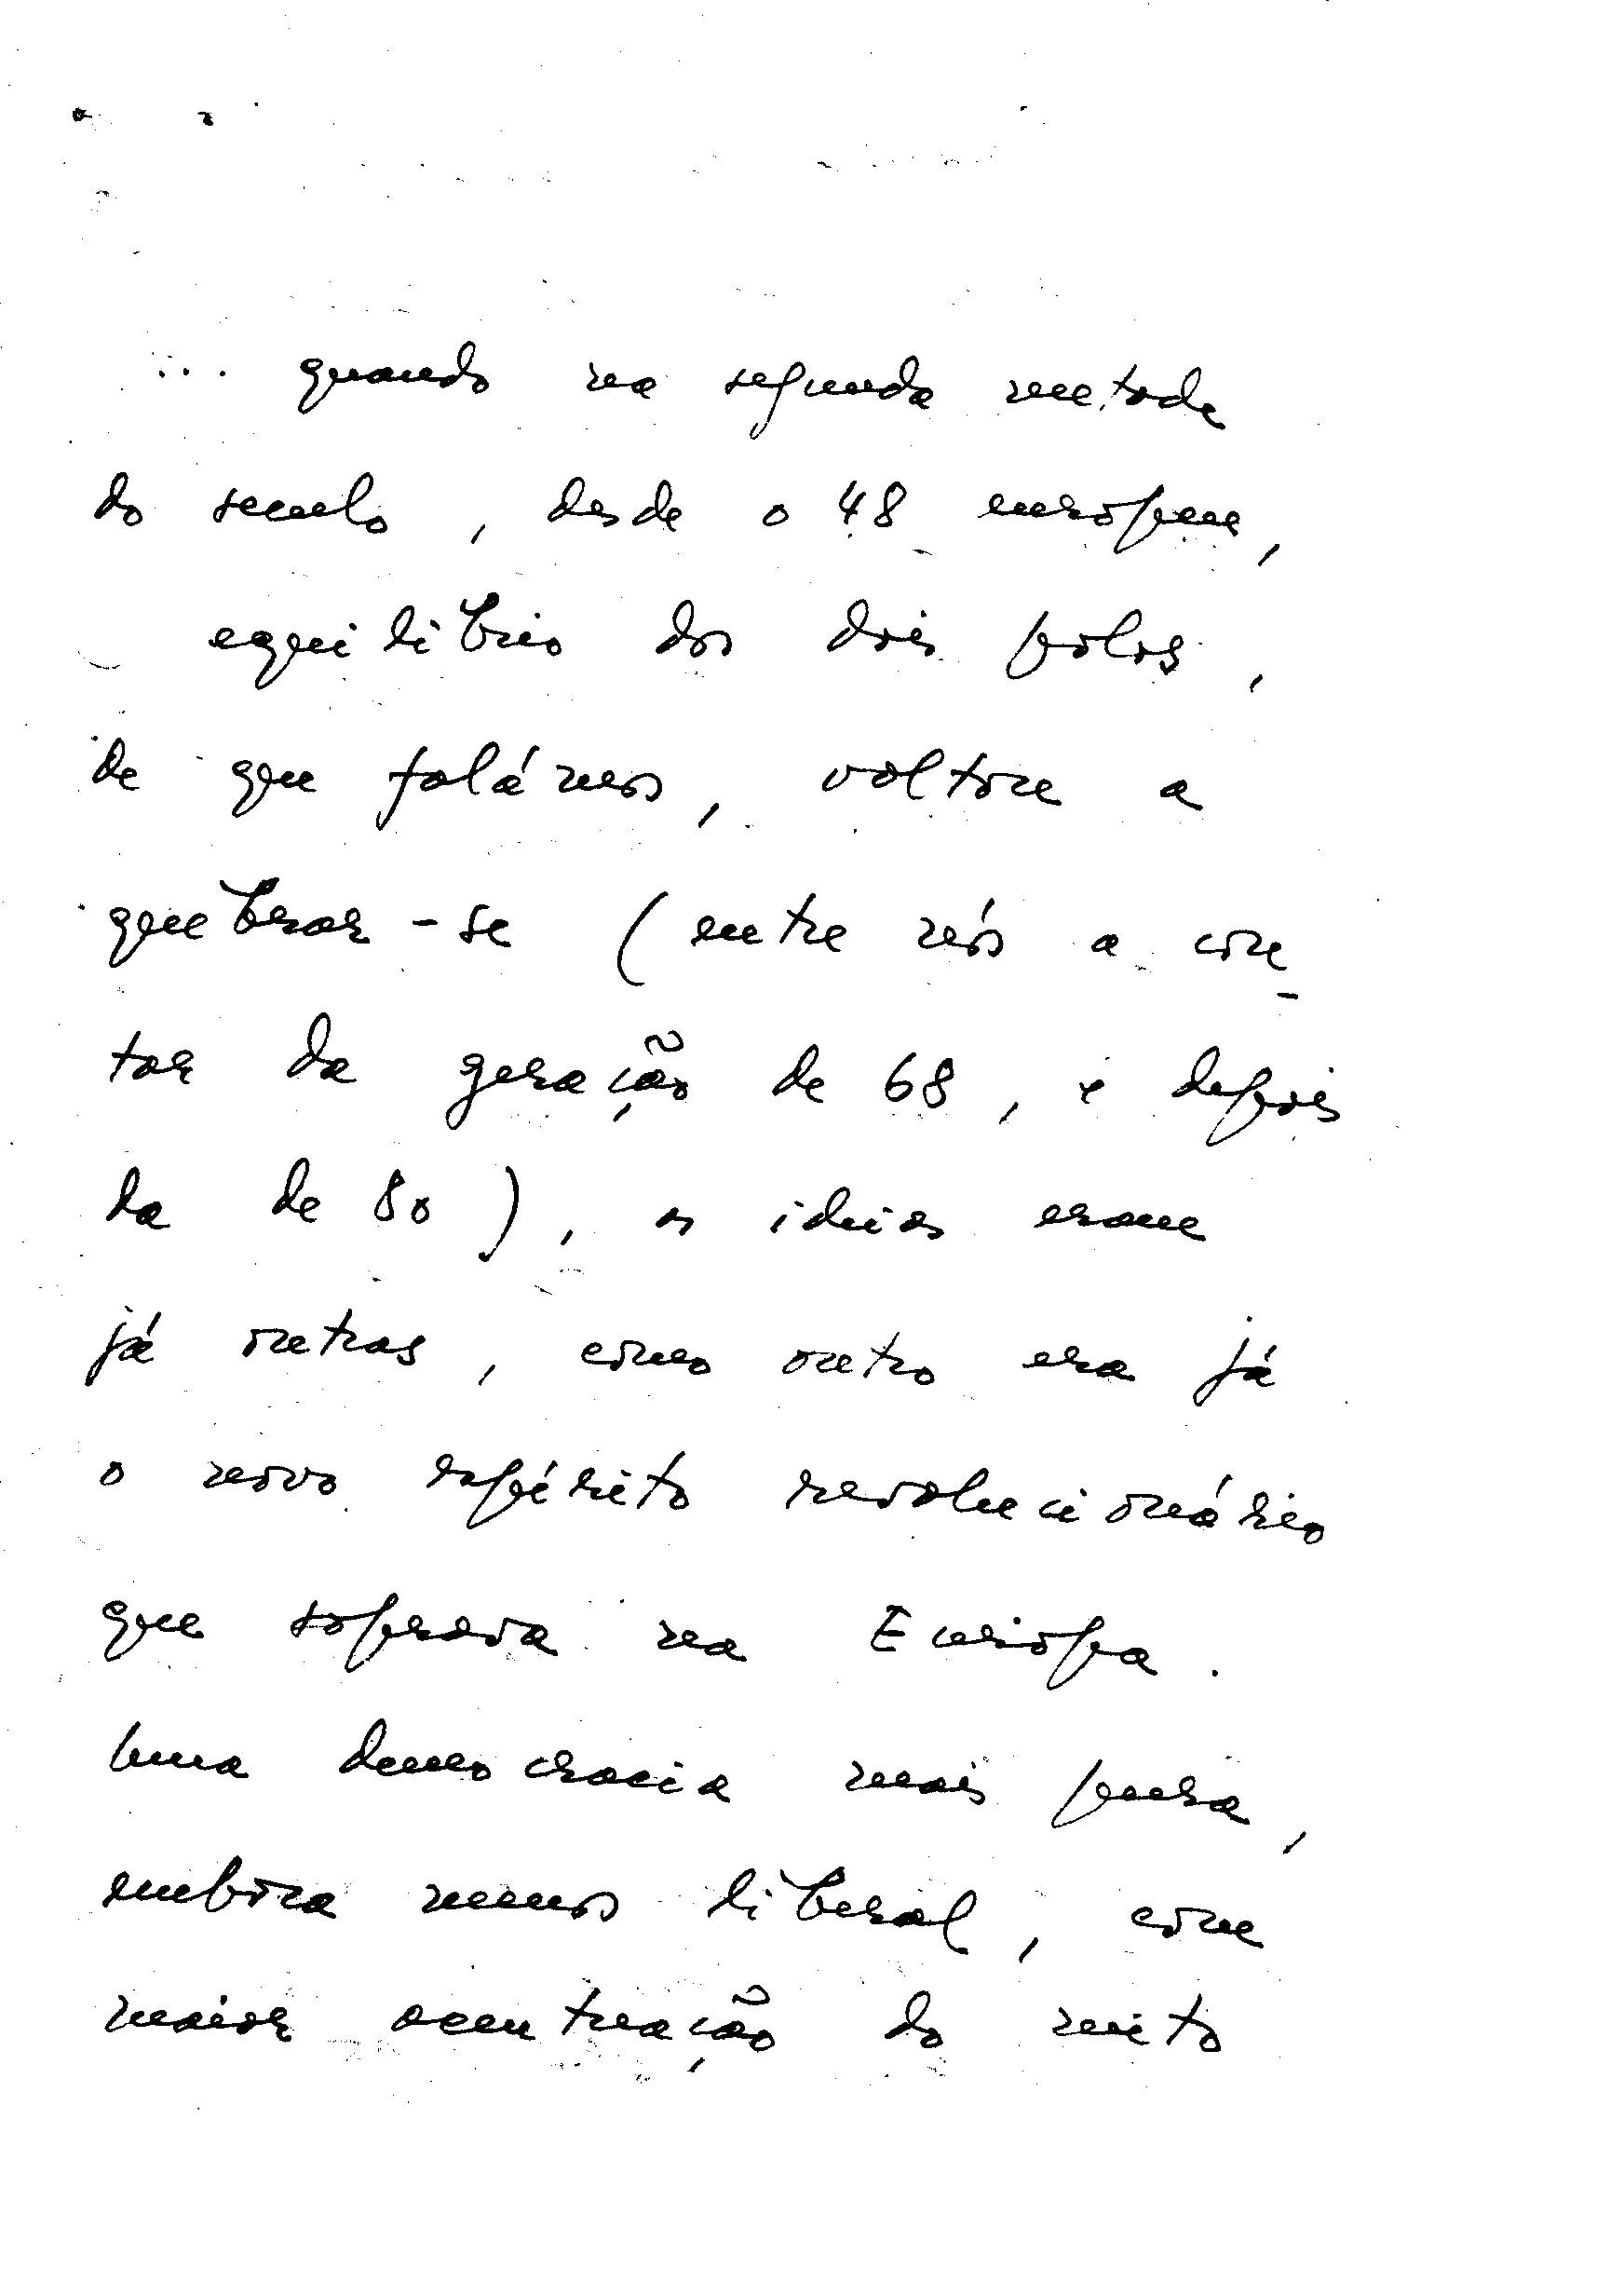 ... quando na segunda metade
do seculo, desde o 48 europeu,
equilibrio dos dois polos,
de que falámos, voltou a
quebrar-se (entre nós a con-
tar da geração de 68, e depois
da de 80), as ideias eram
já outras, como outro era já
o novo espírito revolucionário
que soprava na Europa.
Uma democracia mais pura,
embora menos liberal, com
maior acentuação do mito